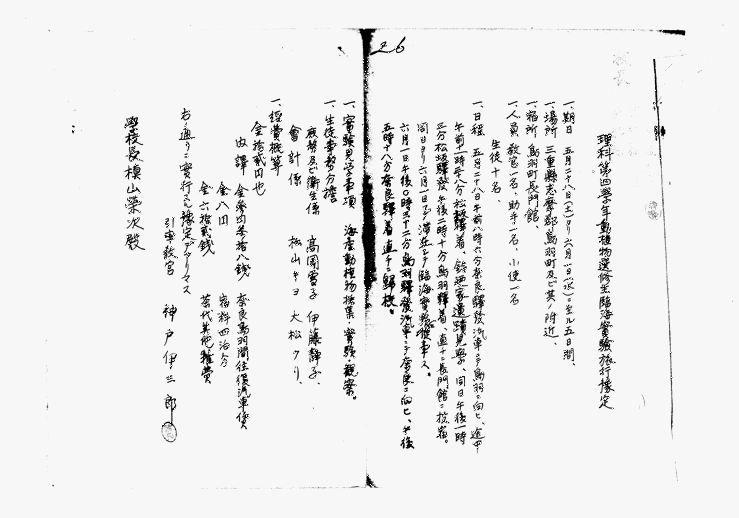 26
理科第四學年動植物選修生臨海實驗旅行豫定
一、期日 五月二十八日(土)ヨリ六月一日(水)ニ至ル五日間、
一、場所 三重縣志摩郡鳥羽町及ビ其ノ附近、
一、宿所 鳥羽町長門館、
一、人員 教官一名、助手一名、小使一名
生徒十名、
一、日程 五月二十八日午前八時六分奈良驛發汽車ニテ鳥羽ニ向ヒ、途中
午前十一時 八分松阪驛着、鈴廼家遺蹟見學、同日午後一時
三分松坂驛發午後二時十分鳥羽驛着、直チニ長門館ニ投宿。
同日ヨリ六月一日マデ滞在シテ臨海實驗ニ從事ス。
六月一日午後〇時三十二分鳥羽驛發汽車ニテ奈良ニ向ヒ、午後
五時十八分奈良驛着直チニ歸校。
一、實驗見學事項 海産動植物採集・實驗・觀察。
一、生徒事務分擔
庶務及ビ衞生係 高岡富子 伊藤靜子、
會計係 松山キヨ 大松クリ、
一、經費概算
金拾貳円也
内譯 金參円參拾八錢 奈良鳥羽間往復汽車賃
金八円 宿料四泊分
金六拾貳錢 茶代其他雜費
右ノ通リニ實行スル豫定デアリマス
引率教官 神戸伊三郎
學校長槇山榮次殿